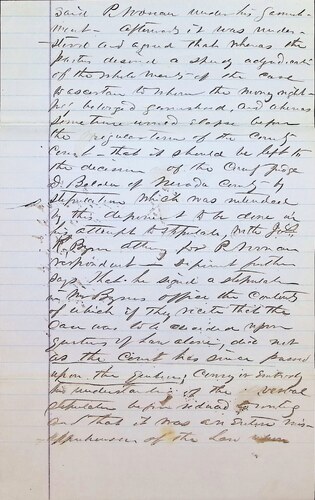 said P. Noonan under his garnish
ment - afterwards it was under
stood and agreed that whereas the
parties desired a speedy adjudication
of the whole merits of the case
to ascertain to whom the money right-
belonged garnisheed, and whereas
some time would elapse before
the regular terms of the County
Court - that it should be left to
the decision of the County Judge
D. Belden of Nevada County - by
stipulation which was intended
by this deponent to be done in
his attempt to stipulate, with
Byrne atty for P. Noonan
respondent - deponent further
says that he signed a stipulation
in Mr Byrnes office the contents
of which if they recite that the
case was to be decided upon
questions of law alone, did not
as the Court has since passed
upon the question, Convey
his understanding of the verbal
stipulation before reduced to writing
and that it was an entire mis-
apprehension of the law